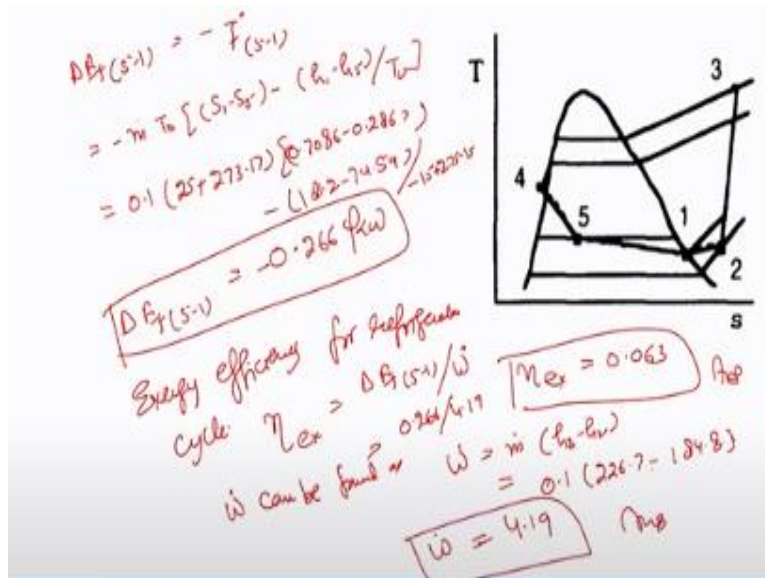 ΔE_f(5-1) = - İ_(5-1)
= -ṁ T₀ [(S₁-S₅) - (h₁-h₅)/T_L]
= 0.1 (25+273.17) [0.7086-0.2867)
- (182-74.59)/-15+273.15
ΔE_f(5-1) = -0.266 kW
Exergy efficiency for refrigeration
cycle η_ex = ΔE_f(5-1)/ẇ
= 0.266/4.19
η_ex = 0.063 Ans
ẇ can be found as ẇ = ṁ (h₃-h₂)
= 0.1 (226.7-184.8)
ẇ = 4.19 Ans
T
3
4
5
1
2
s